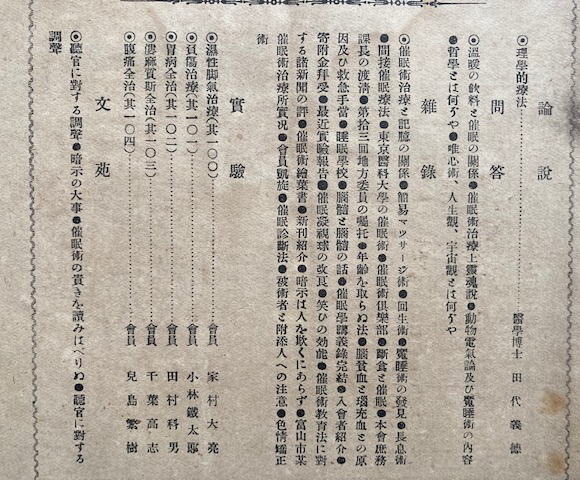 論説
◉理學的療法……………………………醫學博士 田代義德
問答
◉溫暖の飲料と催眠の關係●催眠術治療上靈魂說●動物電氣論及び魔睡術の內容
●哲學とは何ぞや●唯心術、人生觀、宇宙觀とは何ぞや
雜錄
◉催眠術治療と記憶の關係●簡易マツサージ術●回生術●魔睡術の發見●長息術
●間接催眠療法●東京醫科大學の催眠術●催眠術俱樂部●斷食と催眠●本會庶務
課長の渡淸●第拾三回地方委員の囑托●年齡を取らぬ法●腦貧血と腦充血との原
因及び救急手當●睡眠學校●腦髓と腦髓の話●催眠學講義錄完結●入會者紹介●
寄附金拜受●最近實驗報告●催眠凝視球の改良●笑ひの効能●催眠術敎育法に對
する諸新聞の評●催眠術繪葉書●新刊紹介●暗示は人を欺くにあらず●富山市某
催眠術治療所實况●會員凱旋●催眠診斷法●被術者と附添人への注意●色情矯正
術
實驗
◉濕性脚氣治療(其一〇〇)……………會員 家村大亮
◉負傷治療(其一〇一)……………會員 小林鐵太郞
◉胃病全治(其一〇二)……………會員 田村科男
◉僂麻質斯全治(其一〇三)……………會員 千葉高志
◉腹痛全治(其一〇四)……………會員 兒島繁樹
文苑
◉聽官に對する調聲●暗示の大事●催眠術の貴きを讀みはべりぬ●聽官に對する
調聲